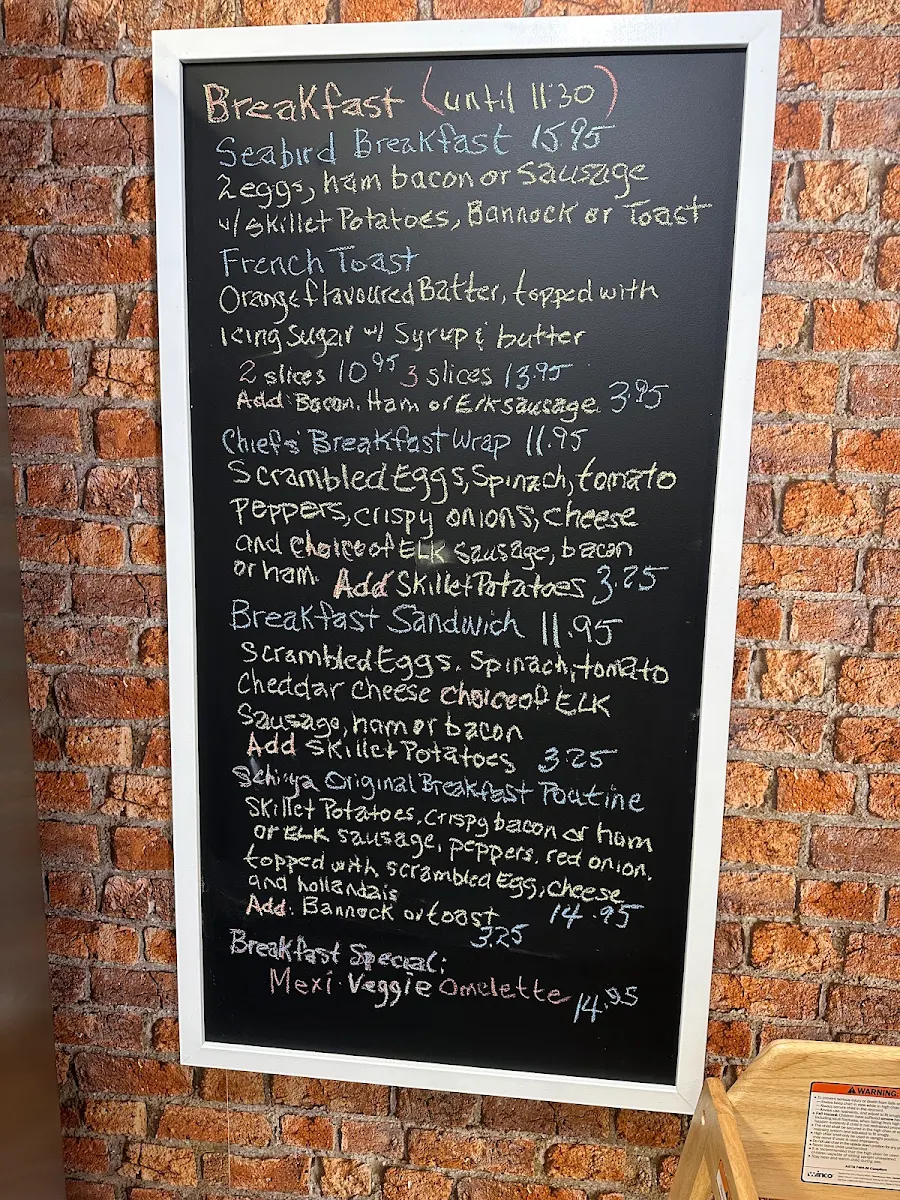 Breakfast (until 11:30)
Seabird Breakfast 15.95
2 eggs, ham bacon or Sausage
w/ skillet Potatoes, Bannock or Toast
French Toast
Orange flavoured Batter, topped with
Icing Sugar w/ Syrup & butter
2 slices 10.95 3 slices 13.95
Add: Bacon, Ham or Elk sausage 3.95
Chiefs' Breakfast Wrap 11.95
Scrambled Eggs, Spinach, tomato
Peppers, crispy onions, cheese
and choice of ELK sausage, bacon
or ham. Add Skillet Potatoes 3.25
Breakfast Sandwich 11.95
Scrambled Eggs, Spinach, tomato
Cheddar cheese choice of ELK
Sausage, ham or bacon
Add Skillet Potatoes 3.25
Original Breakfast Poutine
Skillet Potatoes, crispy bacon or ham
or ELK sausage, peppers, red onion,
topped with scrambled Egg, cheese
and hollandais 14.95
Add: Bannock or toast
3.25
Breakfast Special:
Mexi Veggie Omelette 14.95
WARNING
winco